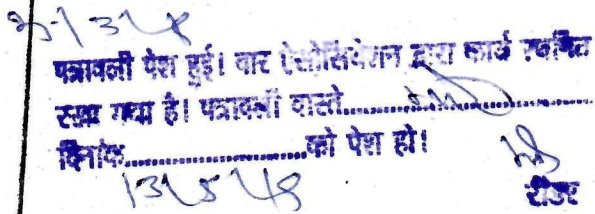 पत्रावली पेश हुई। वार ऐसोसियेशन द्वारा कार्य स्थगित
रखा गया है। पत्रावली वास्ते....................
दिनांक....................को पेश हो।
रीडर